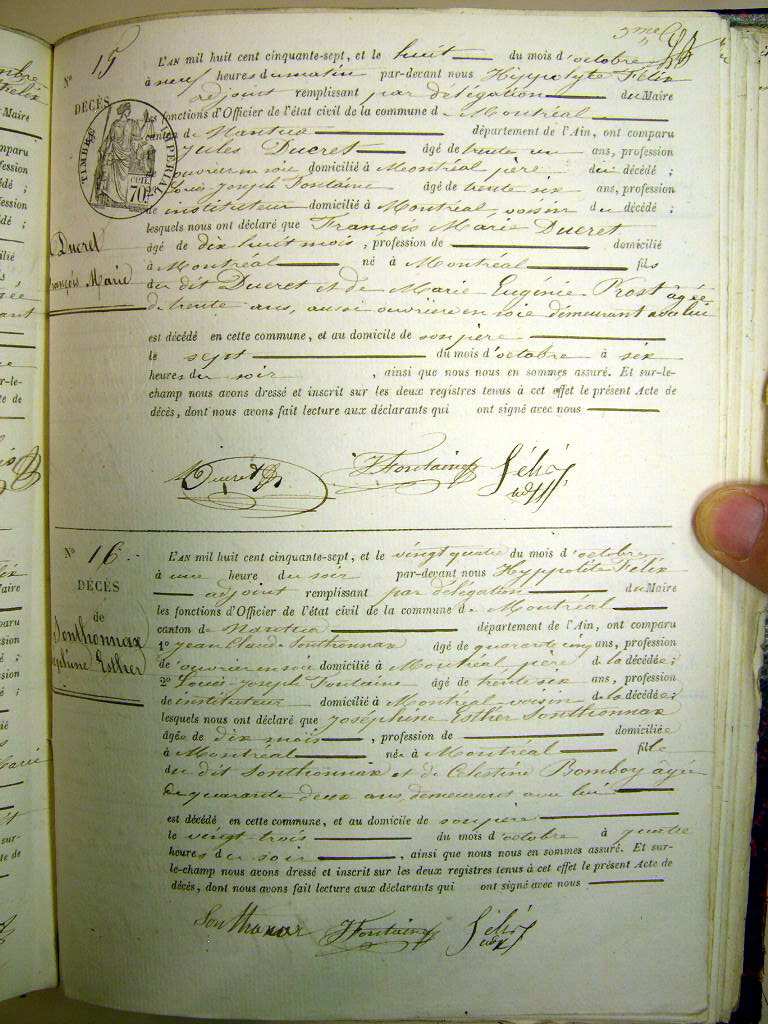 N° 15
L'AN mil huit cent cinquante-sept, et le huit du mois d'octobre
à neuf heures du matin par-devant nous Hyppolyte Félix
adjoint remplissant par délégation du Maire
DÉCÈS
les fonctions d'Officier de l'état civil de la commune d Montréal
canton d Nantua département de l'Ain, ont comparu
Jules Ducret âgé de trente un ans, profession
ouvrier en soie domicilié à Montréal père du décédé ;
Louis Joseph Fontaine âgé de trente six ans, profession
de instituteur domicilié à Montréal, voisin du décédé ;
TIMBRE IMPÉRIAL
70
lesquels nous ont déclaré que François Marie Ducret
âgé de dix huit mois, profession de domicilié
à Montréal né à Montréal fils
Ducret
François Marie
du dit Ducret et de Marie Eugénie Rost âgée
de trente ans, aussi ouvrière en soie demeurant avec lui
est décédé en cette commune, et au domicile de son père
le sept du mois d'octobre à six
heures du soir, ainsi que nous nous en sommes assuré. Et sur-le-
champ nous avons dressé et inscrit sur les deux registres tenus à cet effet le présent Acte de
décès, dont nous avons fait lecture aux déclarants qui ont signé avec nous
Ducret JFontaine Félix
adj
N° 16
L'AN mil huit cent cinquante-sept, et le vingt quatre du mois d'octobre
à une heure du soir par-devant nous Hyppolite Félix
adjoint remplissant par délégation du Maire
DÉCÈS
de
Sonthonnax
Joséphine Esther
les fonctions d'Officier de l'état civil de la commune d Montréal
canton d Nantua département de l'Ain, ont comparu
1° Jean Claude Sonthonnax âgé de quarante cinq ans, profession
de ouvrier en soie domicilié à Montréal, père d la décédée ;
2° Louis-Joseph Fontaine âgé de trente six ans, profession
de instituteur domicilié à Montréal voisin de la décédée ;
lesquels nous ont déclaré que Joséphine Esther Sonthonnax
âgée de dix mois, profession de domiciliée
à Montréal née à Montréal fille
du dit Sonthonnax et de Célestine Bomboy âgée
de quarante deux ans demeurant avec lui
est décédé en cette commune, et au domicile de son père
le vingt-trois du mois d'octobre à quatre
heures du soir, ainsi que nous nous en sommes assuré. Et sur-
le-champ nous avons dressé et inscrit sur les deux registres tenus à cet effet le présent Acte de
décès, dont nous avons fait lecture aux déclarants qui ont signé avec nous
Sonthonax JFontaine Félix
adj